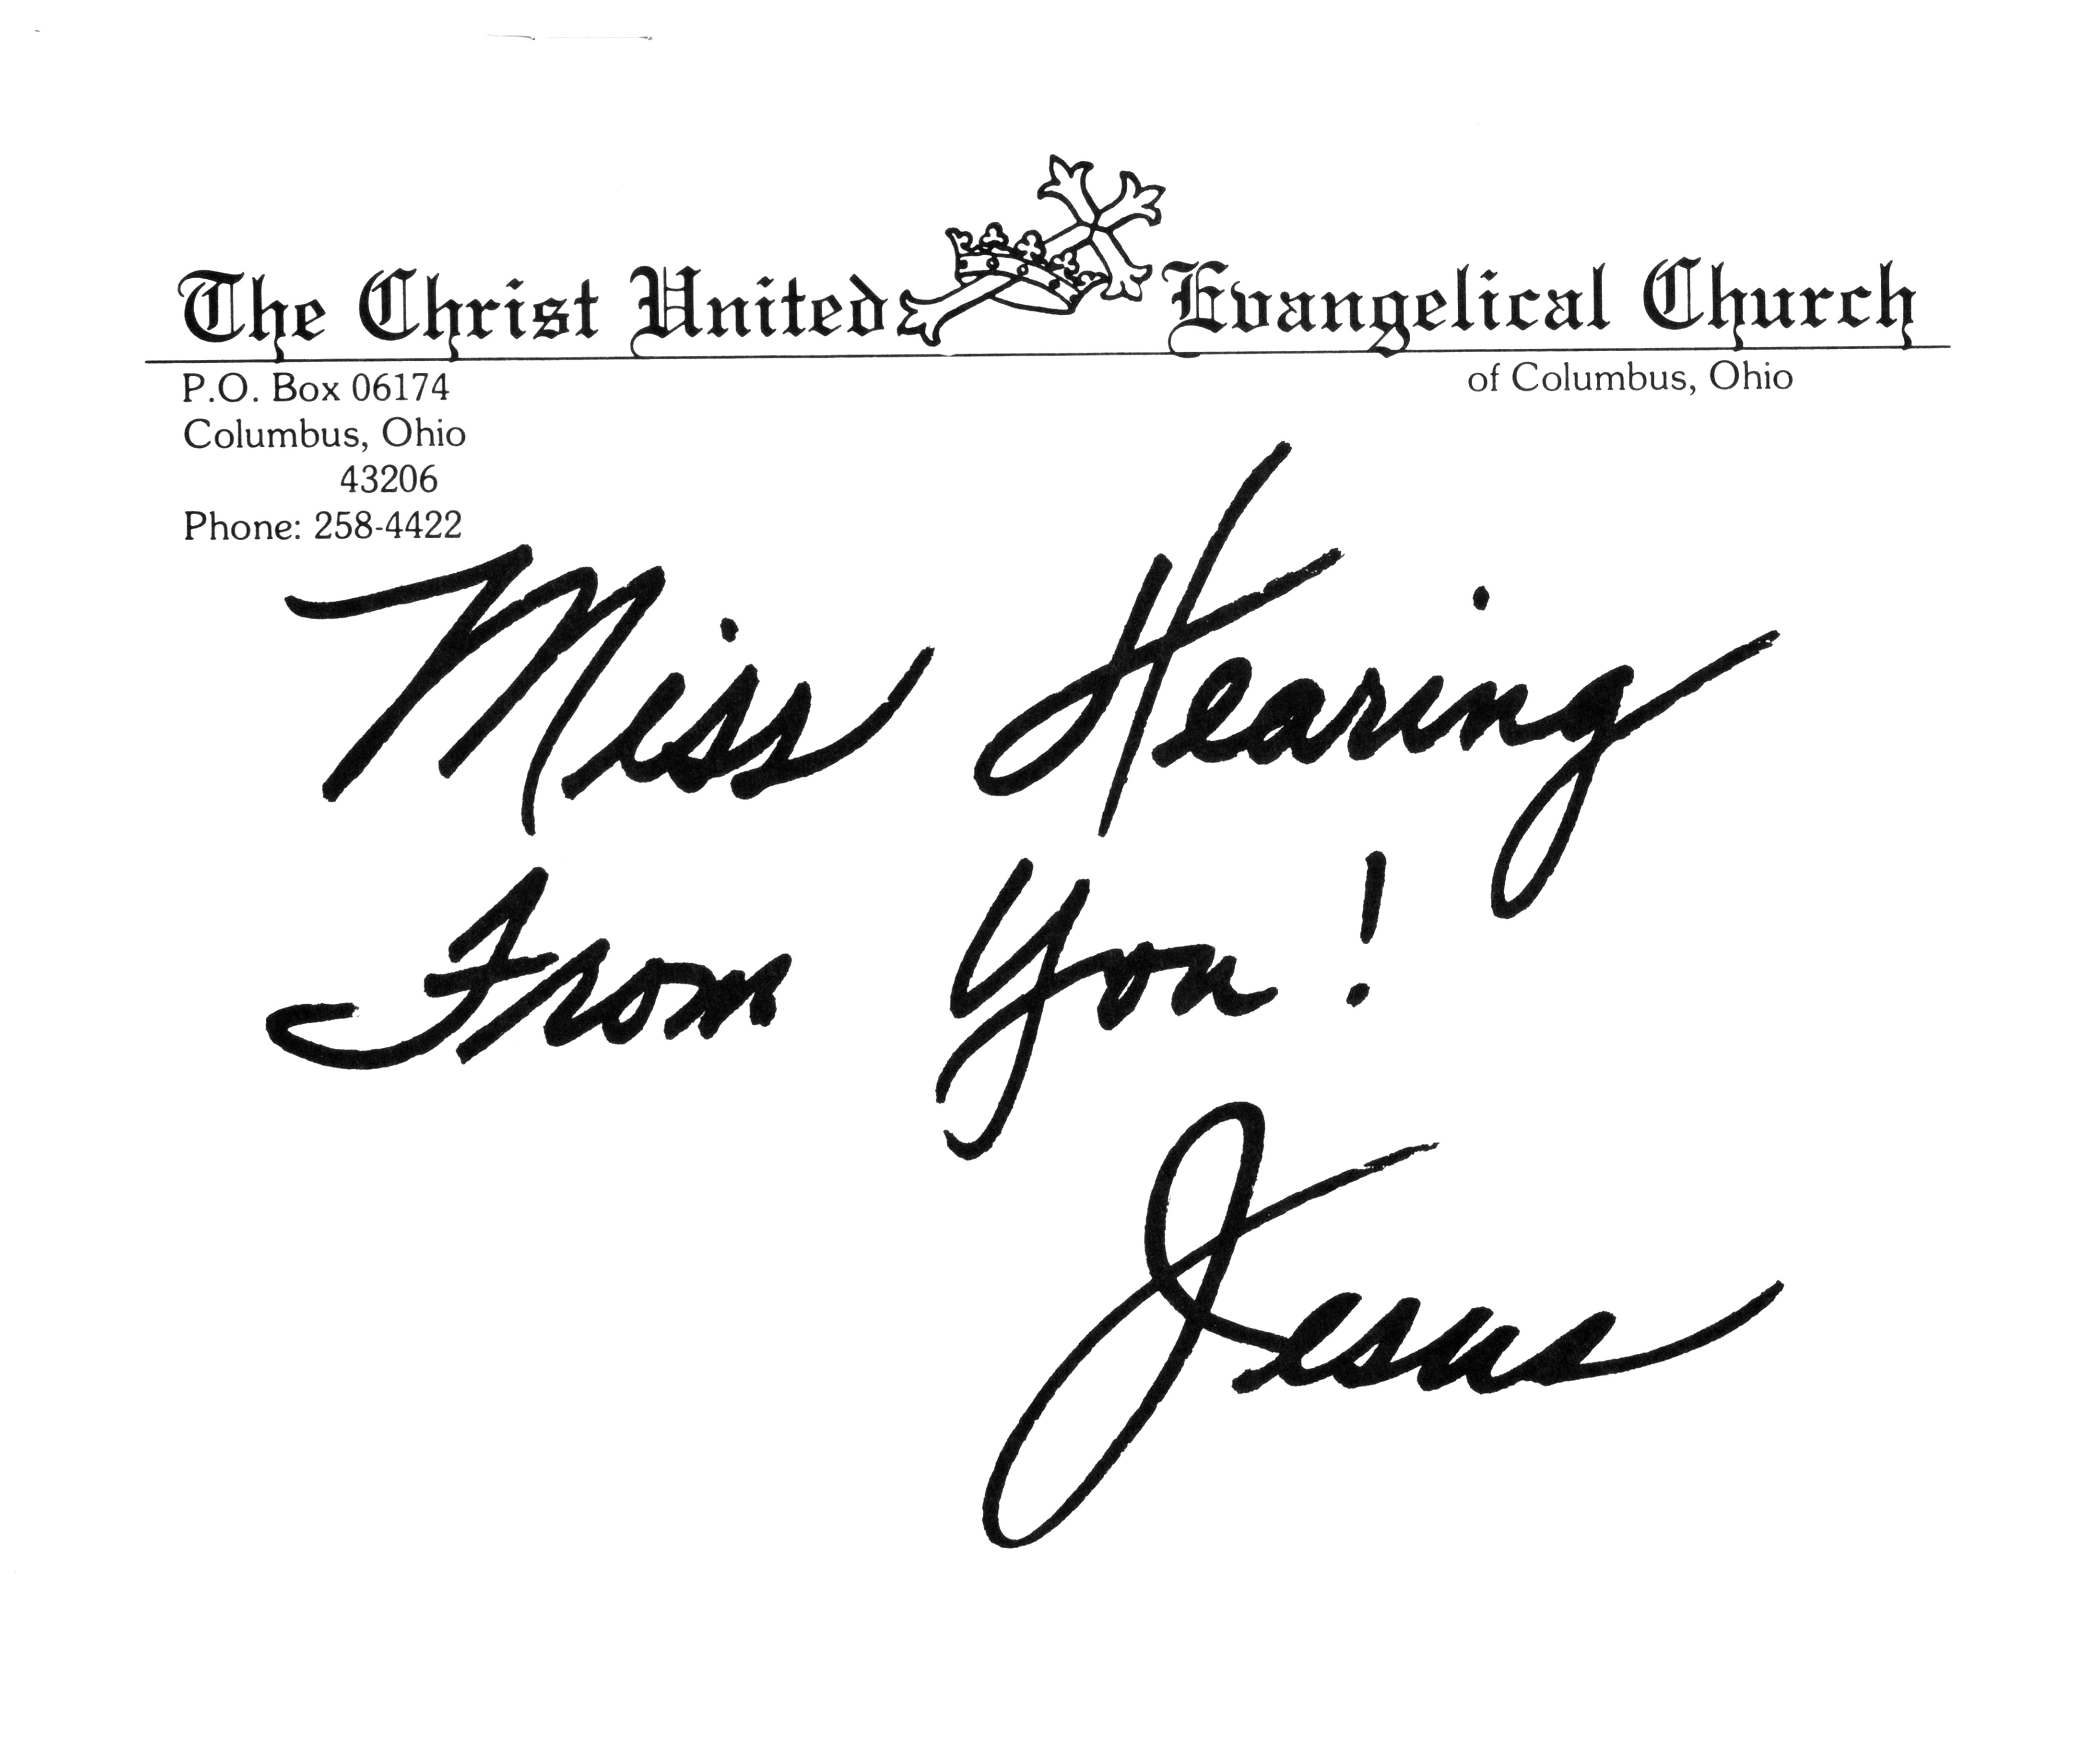 The Christ United Evangelical Church
of Columbus, Ohio
P.O. Box 06174
Columbus, Ohio
43206
Phone: 258-4422
Miss Hearing
From You!
Jesus